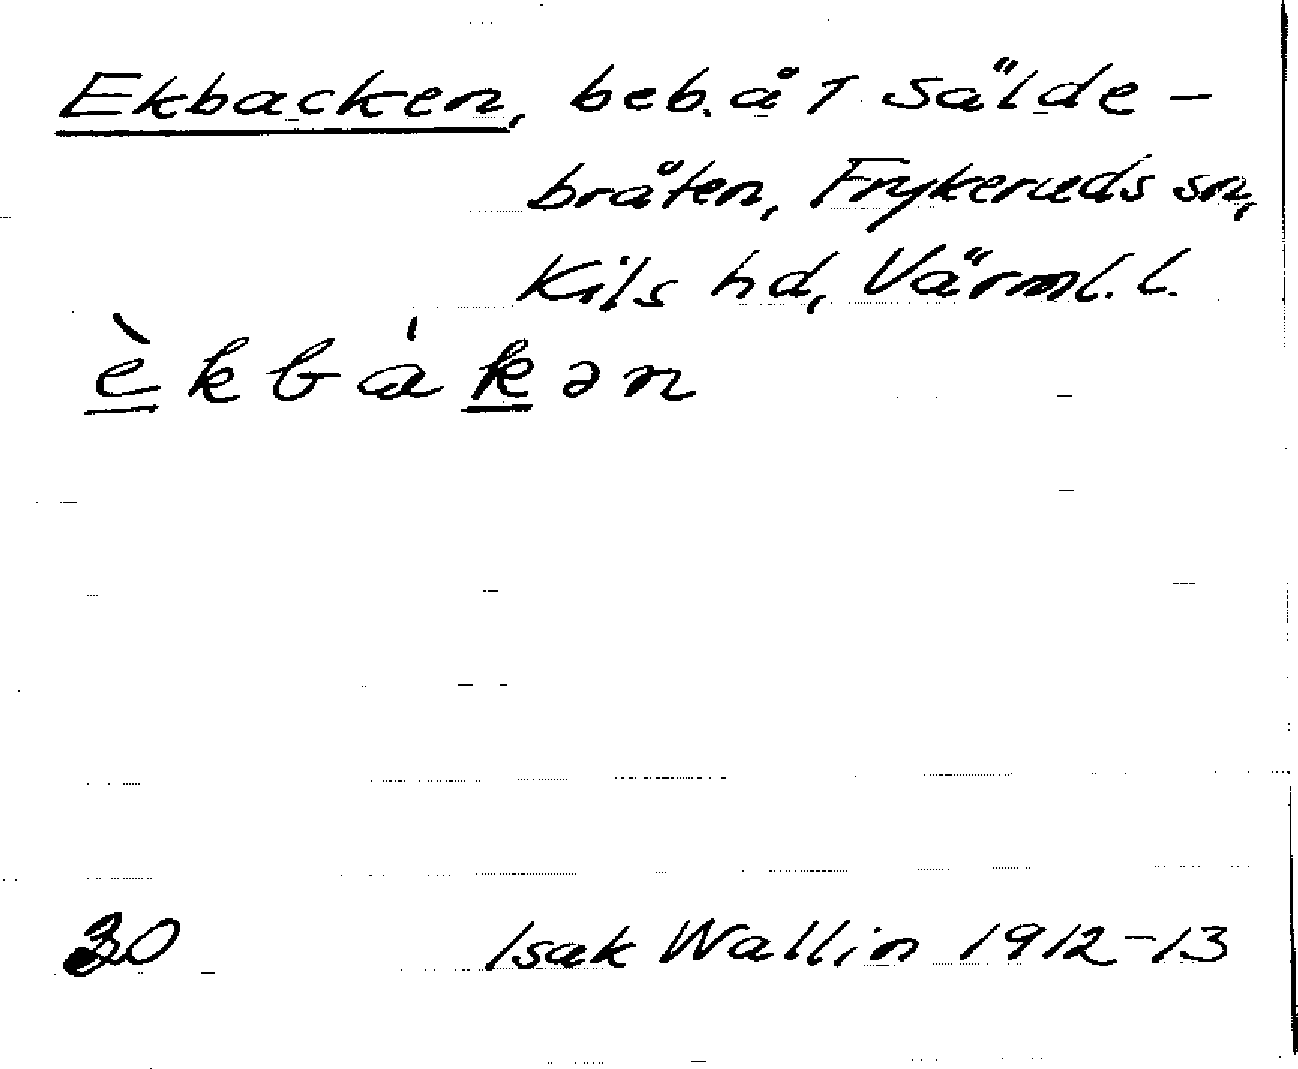 Ekbacken, beb. å 1 Sälde-
bråten, Frykeruds sn,
Kils hd, Värml. l.
èkbákən
30 Isak Wallin 1912-13